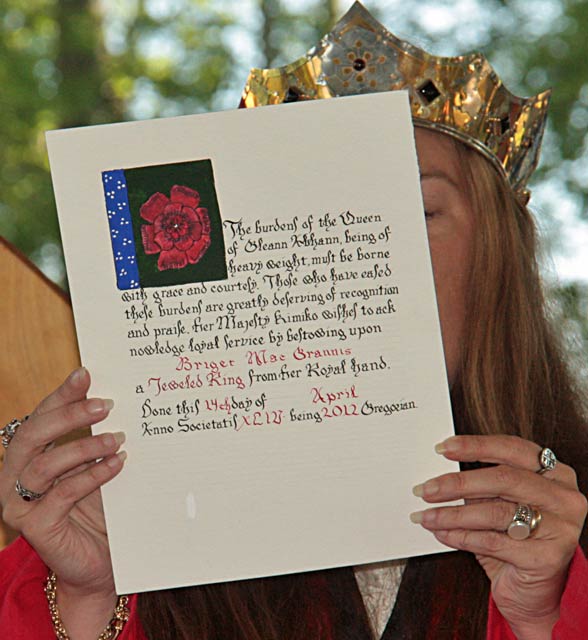 The burdens of the Queen
of Gleann Abhann, being of
heavy weight, must be borne
with grace and courtesy. Those who have eased
these burdens are greatly deserving of recognition
and praise. Her Majesty Kimiko wishes to ack
nowledge loyal service by bestowing upon
Briget Mac Grannis
a Jeweled Ring from her Royal hand.
Done this 14th day of April
Anno Societatis XLVI being 2012 Gregorian